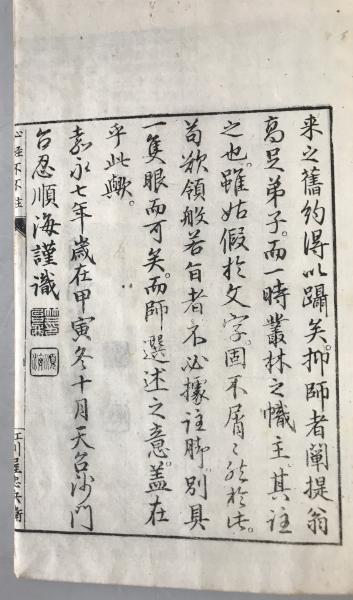 来之舊約得以躡矣。抑師者闡提翁
高足弟子。而一時叢林之幟主。其註
之也。雖姑假於文字。固不屑〻然於此。
苟欲領般若旨者。不必據註脚。別具
一隻眼而可矣。而師選述之意。蓋在
乎此歟。
嘉永七年歲在甲寅冬十月天台沙門
台忍順海謹識
心經不不註